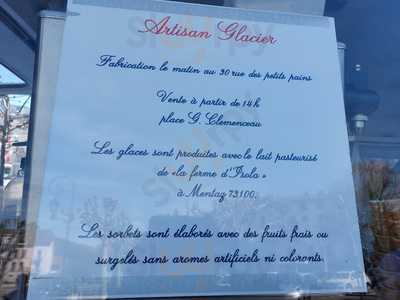 Artisan Glacier
Fabrication le matin au 30 rue des petits pains
Vente à partir de 14h
place G. Clemenceau
Les glaces sont produites avec le lait pasteurisé
de «la ferme d'Isola»
à Montaz 73100.
Les sorbets sont élaborés avec des fruits frais ou
surgelés sans aromes artificiels ni colorants.